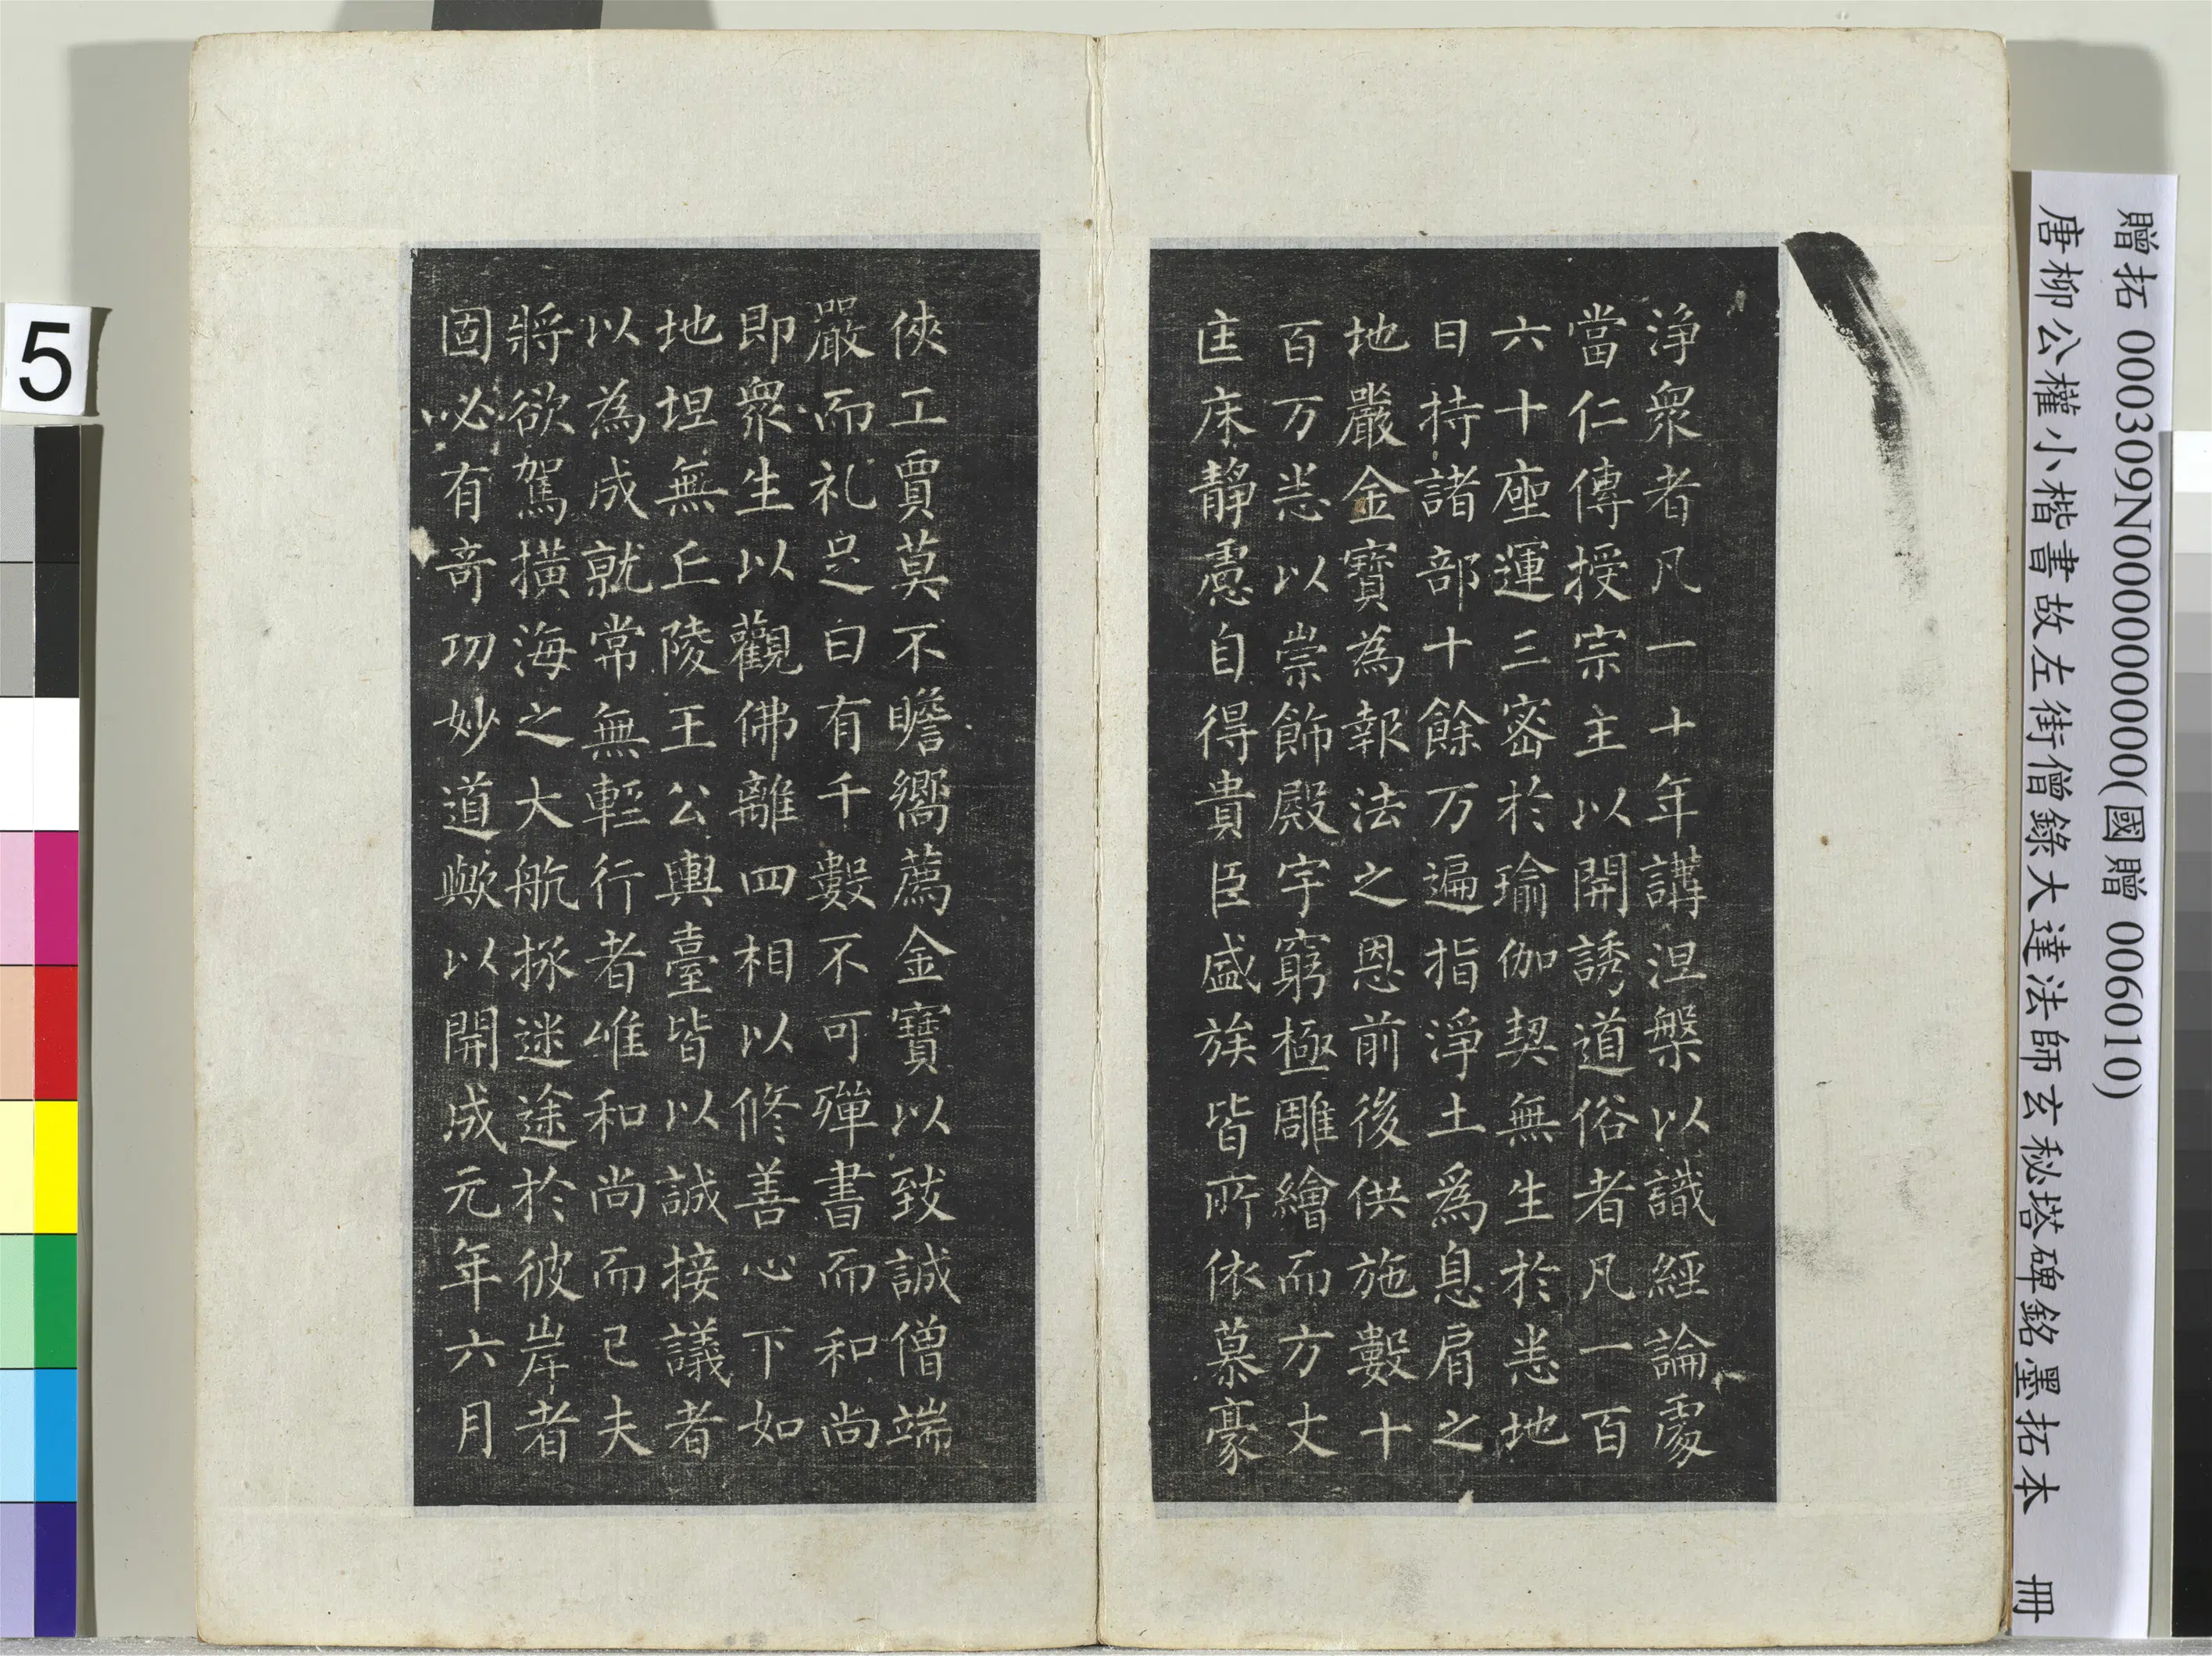 淨衆者凡一十年講涅槃以識經論處
當仁傳授宗主以開誘道俗者凡一百
六十座運三密於瑜伽契無生於悉地
日持諸部十餘万遍指淨土爲息肩之
地嚴金寶為報法之恩前後供施數十
百万悉以崇飾殿宇窮極雕繪而方丈
匡床靜慮自得貴臣盛族皆所依慕豪
俠工賈莫不瞻嚮薦金寶以致誠僧端
嚴而礼足日有千數不可殫書而和尚
即衆生以觀佛離四相以修善心下如
地坦無丘陵王公輿臺皆以誠接議者
以為成就常無輕行者唯和尚而已夫
將欲駕橫海之大航拯迷途於彼岸者
固必有奇功妙道歟以開成元年六月
贈拓 000309N000000000(國贈 006010)
唐柳公權小楷書故左街僧錄大達法師玄秘塔碑銘墨拓本 冊
5